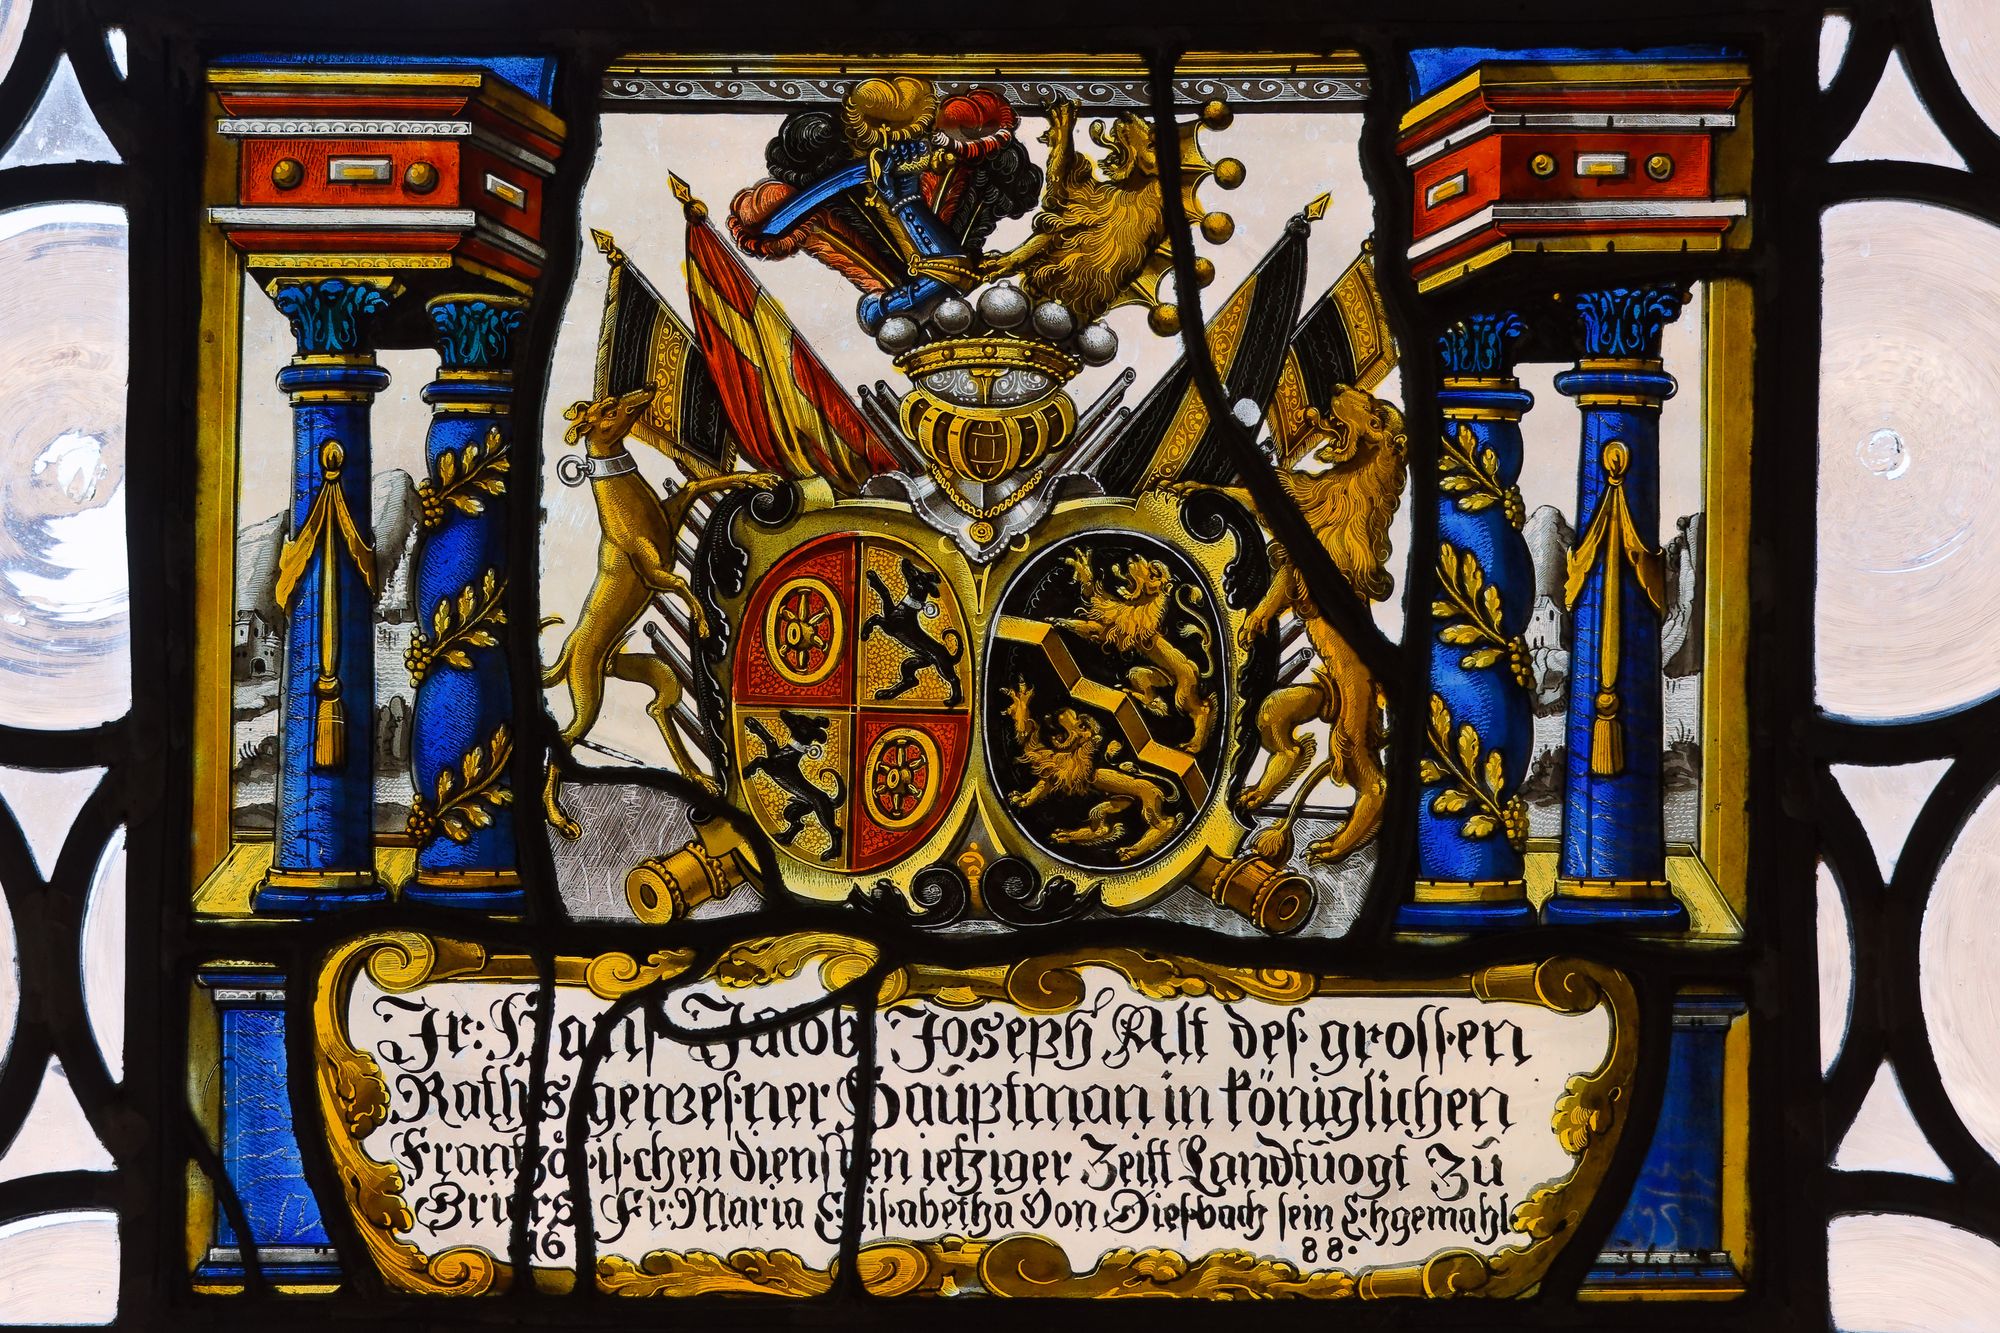 Jr: Hans Jacob Joseph Alt des grossen
Raths gewesner Hauptman in königlichen
Frantzösischen diensten ietziger Zeitt Landtuogt Zu
Briers Fr: Maria Elisabetha Von Diesbach sein Ehgemahl
16 88.